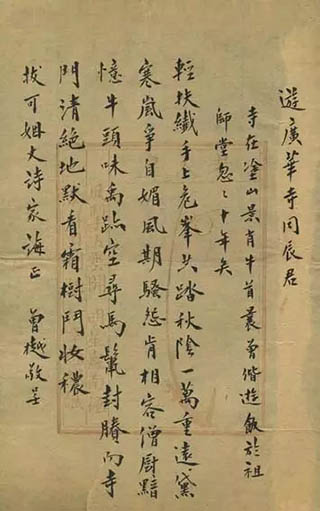 遊廣華寺同辰君
寺在塗山景肖牛首曩曾偕遊飯於祖
師堂忽〻十年矣
輕扶纖手上危峯共踏秋陰一萬重遠黛
寒嵐爭自媚風期騷怨肯相容僧廚黯
憶牛頭味禹跡空尋馬鬣封賸向寺
門清絕地默看霜樹鬥妝穠
拔可姻大詩家誨正 曾樾敬呈